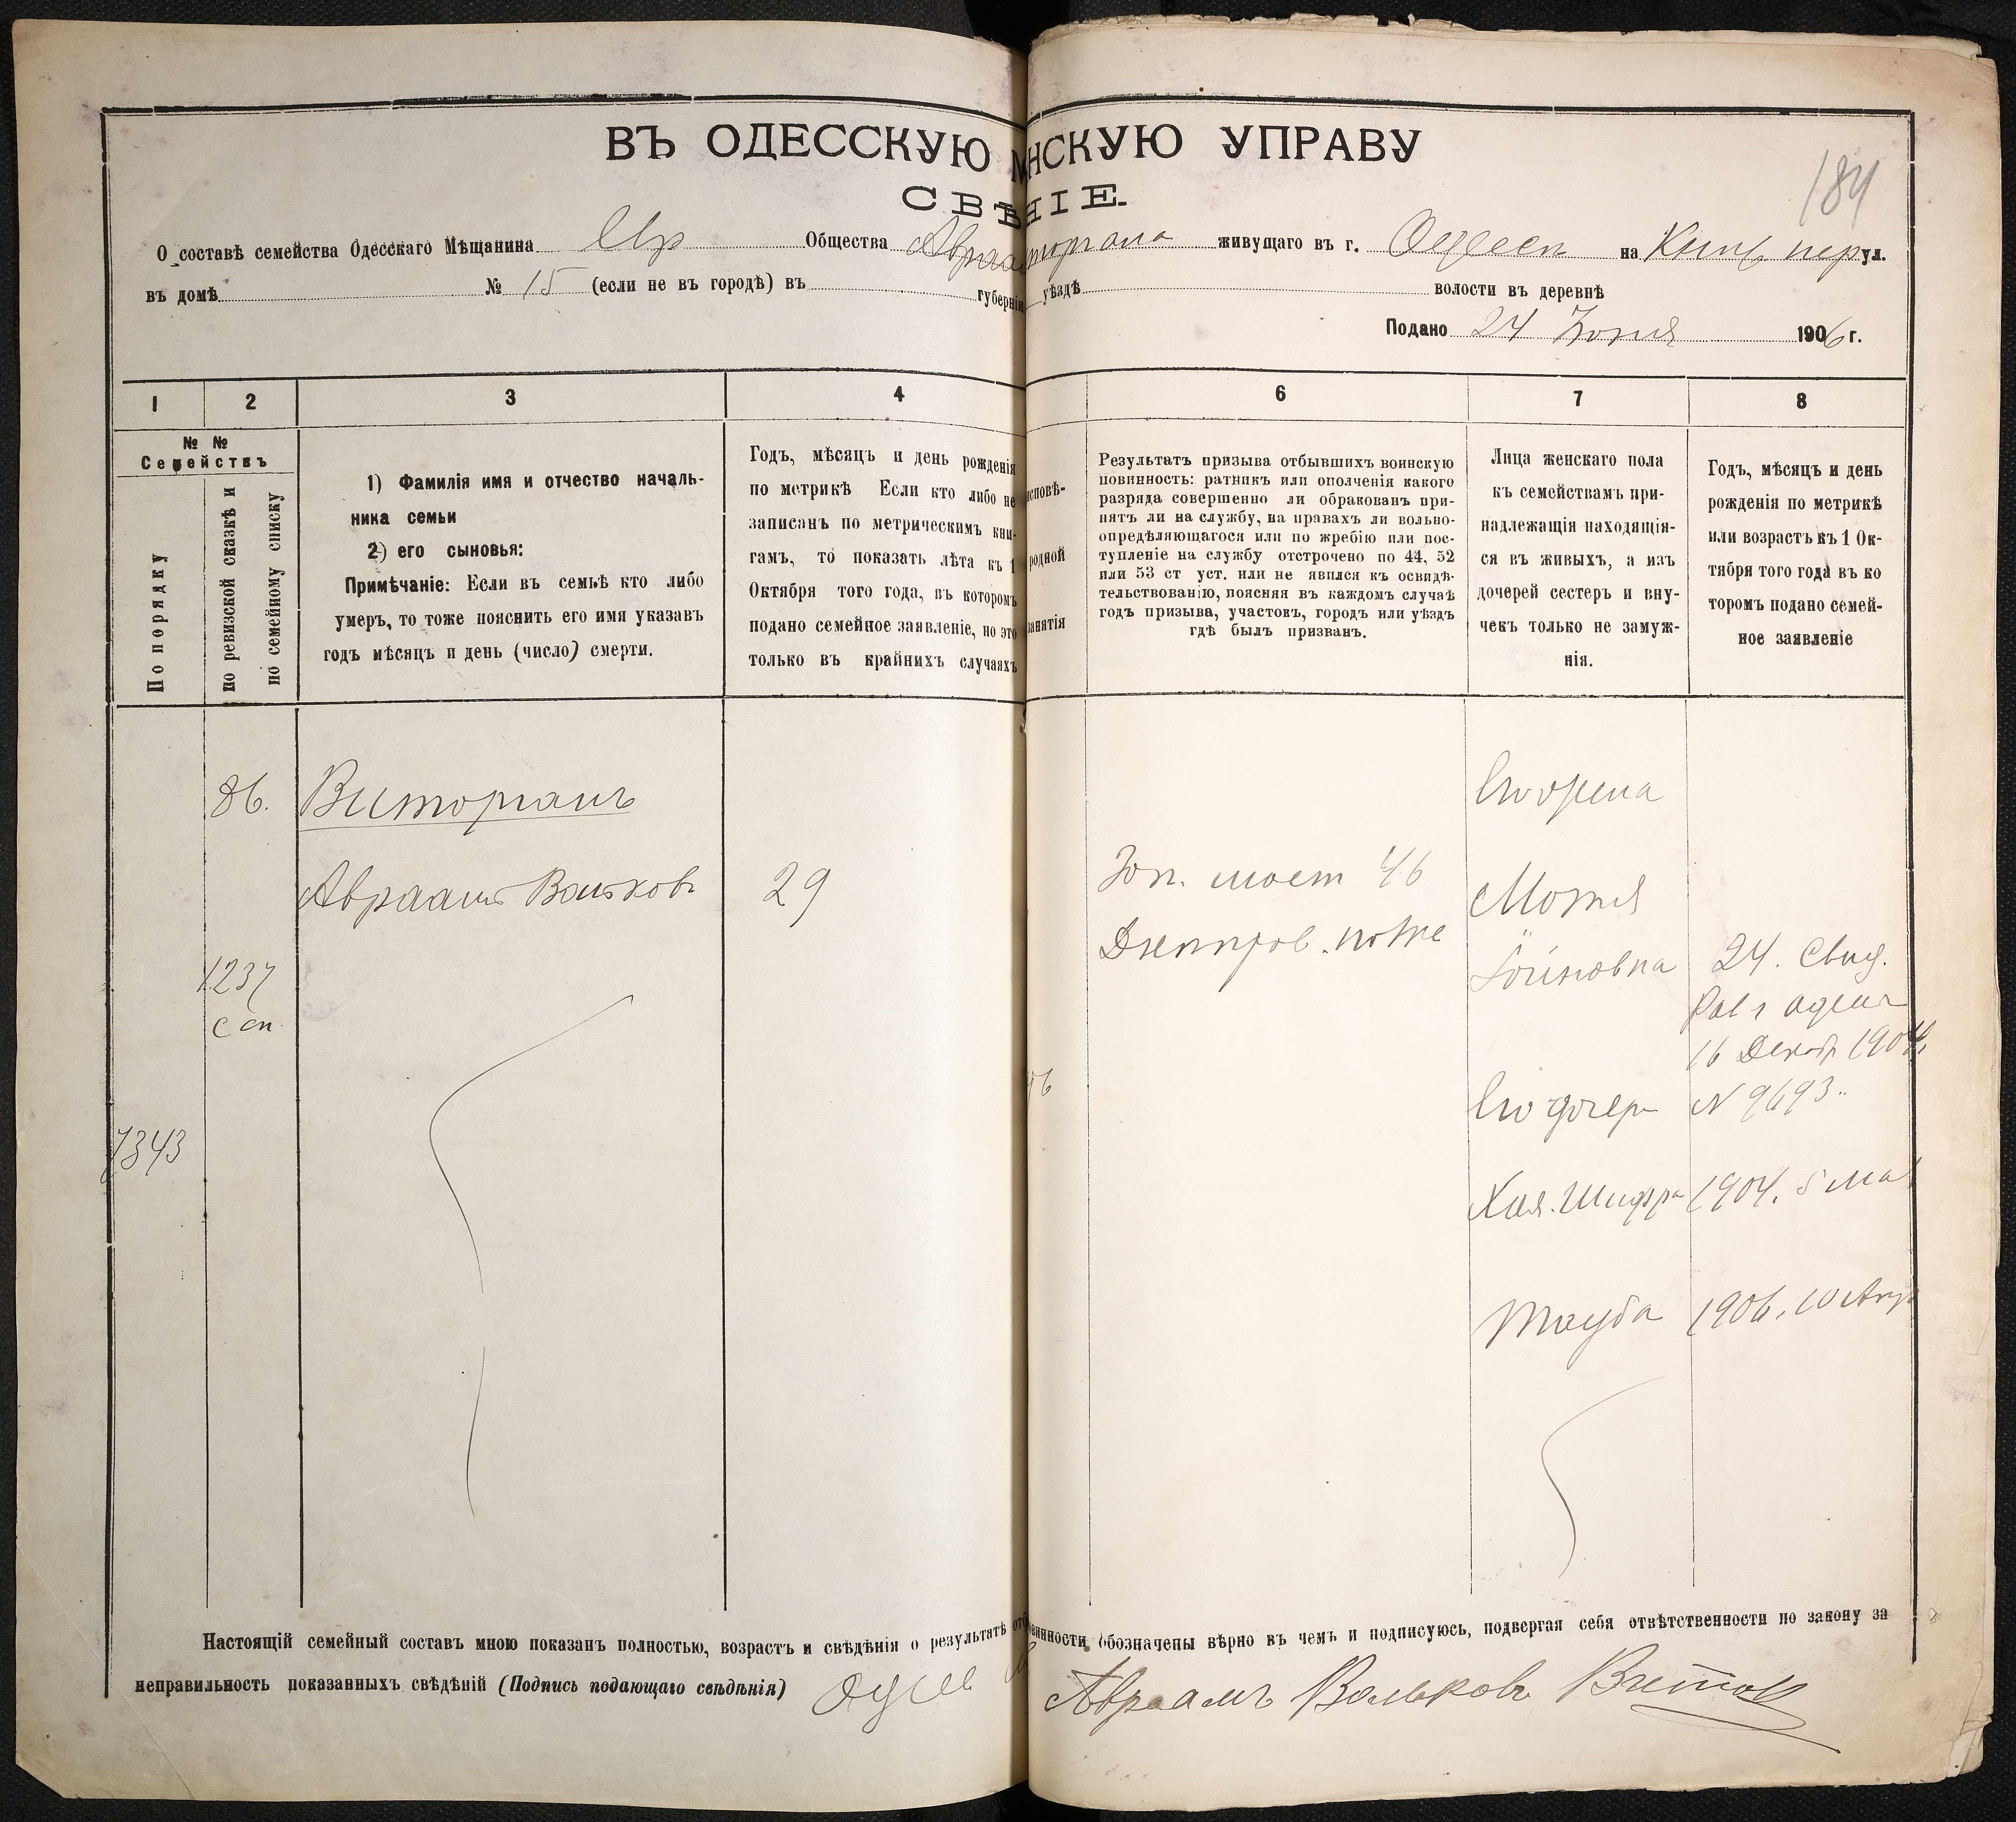 ВЪ ОДЕССКУЮ НСКУЮ УПРАВУ
СВѢ НІЕ.
184
О составѣ семейства Одесскаго Мѣщанина Евр Общества Авраа торгана живущаго въ г. Одессѣ на пер ул.
въ домѣ № 15 (если не въ городѣ) въ губерніи уѣздѣ волости въ деревнѣ
Подано 24 Іюня 1906 г.
1 2 3 4 6 7 8
№ №
Семействъ
По порядку
по ревизской сказкѣ и
по семейному списку
1) Фамилія имя и отчество началь-
ника семьи
2) его сыновья:
Примѣчаніе: Если въ семьѣ кто либо
умеръ, то тоже пояснить его имя указавъ
годъ мѣсяцъ и день (число) смерти.
Годъ, мѣсяцъ и день рожденія
по метрикѣ Если кто либо не
записанъ по метрическимъ кни-
гамъ, то показать лѣта къ 1
Октября того года, въ которомъ
подано семейное заявленіе, но это
только въ крайнихъ случаяхъ
исповѣ-
родной
занятія
Результатъ призыва отбывшихъ воинскую
повинность: ратникъ или ополченія какого
разряда совершенно ли обракованъ при-
нятъ ли на службу, на правахъ ли вольно-
опредѣляющагося или по жребію или пос-
тупленіе на службу отстрочено по 44, 52
или 53 ст уст. или не явился къ освидѣ-
тельствованію, поясняя въ каждомъ случаѣ
годъ призыва, участовъ, городъ или уѣздъ
гдѣ былъ призванъ.
Лица женскаго пола
къ семействамъ при-
надлежащія находящія-
ся въ живыхъ, а изъ
дочерей сестеръ и вну-
чекъ только не замуж-
нія.
Годъ, мѣсяцъ и день
рожденія по метрикѣ
или возрастъ къ 1 Ок-
тября того года въ ко
торомъ подано семей-
ное заявленіе
86. Виторганъ Его жена
Авраамъ Вольковъ 29 46 Мотя
24. Свид.
1237
с сп.
Рав г Одессы
16 Декабр 1904 г.
Его дочери № 9693.
7343
Хая-Шифра 1904. 5 Мая
Тауба 1906. 10 Апр
Настоящій семейный составъ мною показанъ полностью, возрастъ и свѣдѣнія о результатѣ от винности обозначены вѣрно въ чемъ и подписуюсь, подвергая себя отвѣтственности по закону за
неправильность показанныхъ свѣдѣній (Подпись подающаго свѣдѣнія) Авраамъ Вольковъ Витор